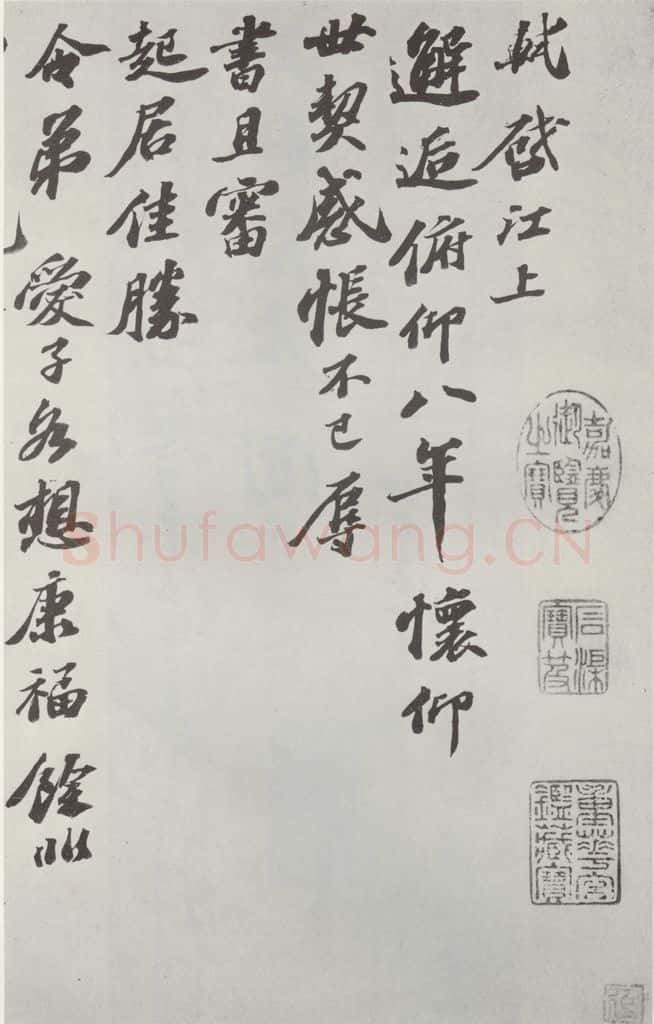 軾啓江上
邂逅俯仰八年懷仰
世契感悵不已辱
書且審
起居佳勝
令弟愛子各想康福餘非
嘉慶
御覽
之寶
石渠
寶笈
重華宮
鑑藏寶
Shufawang.CN